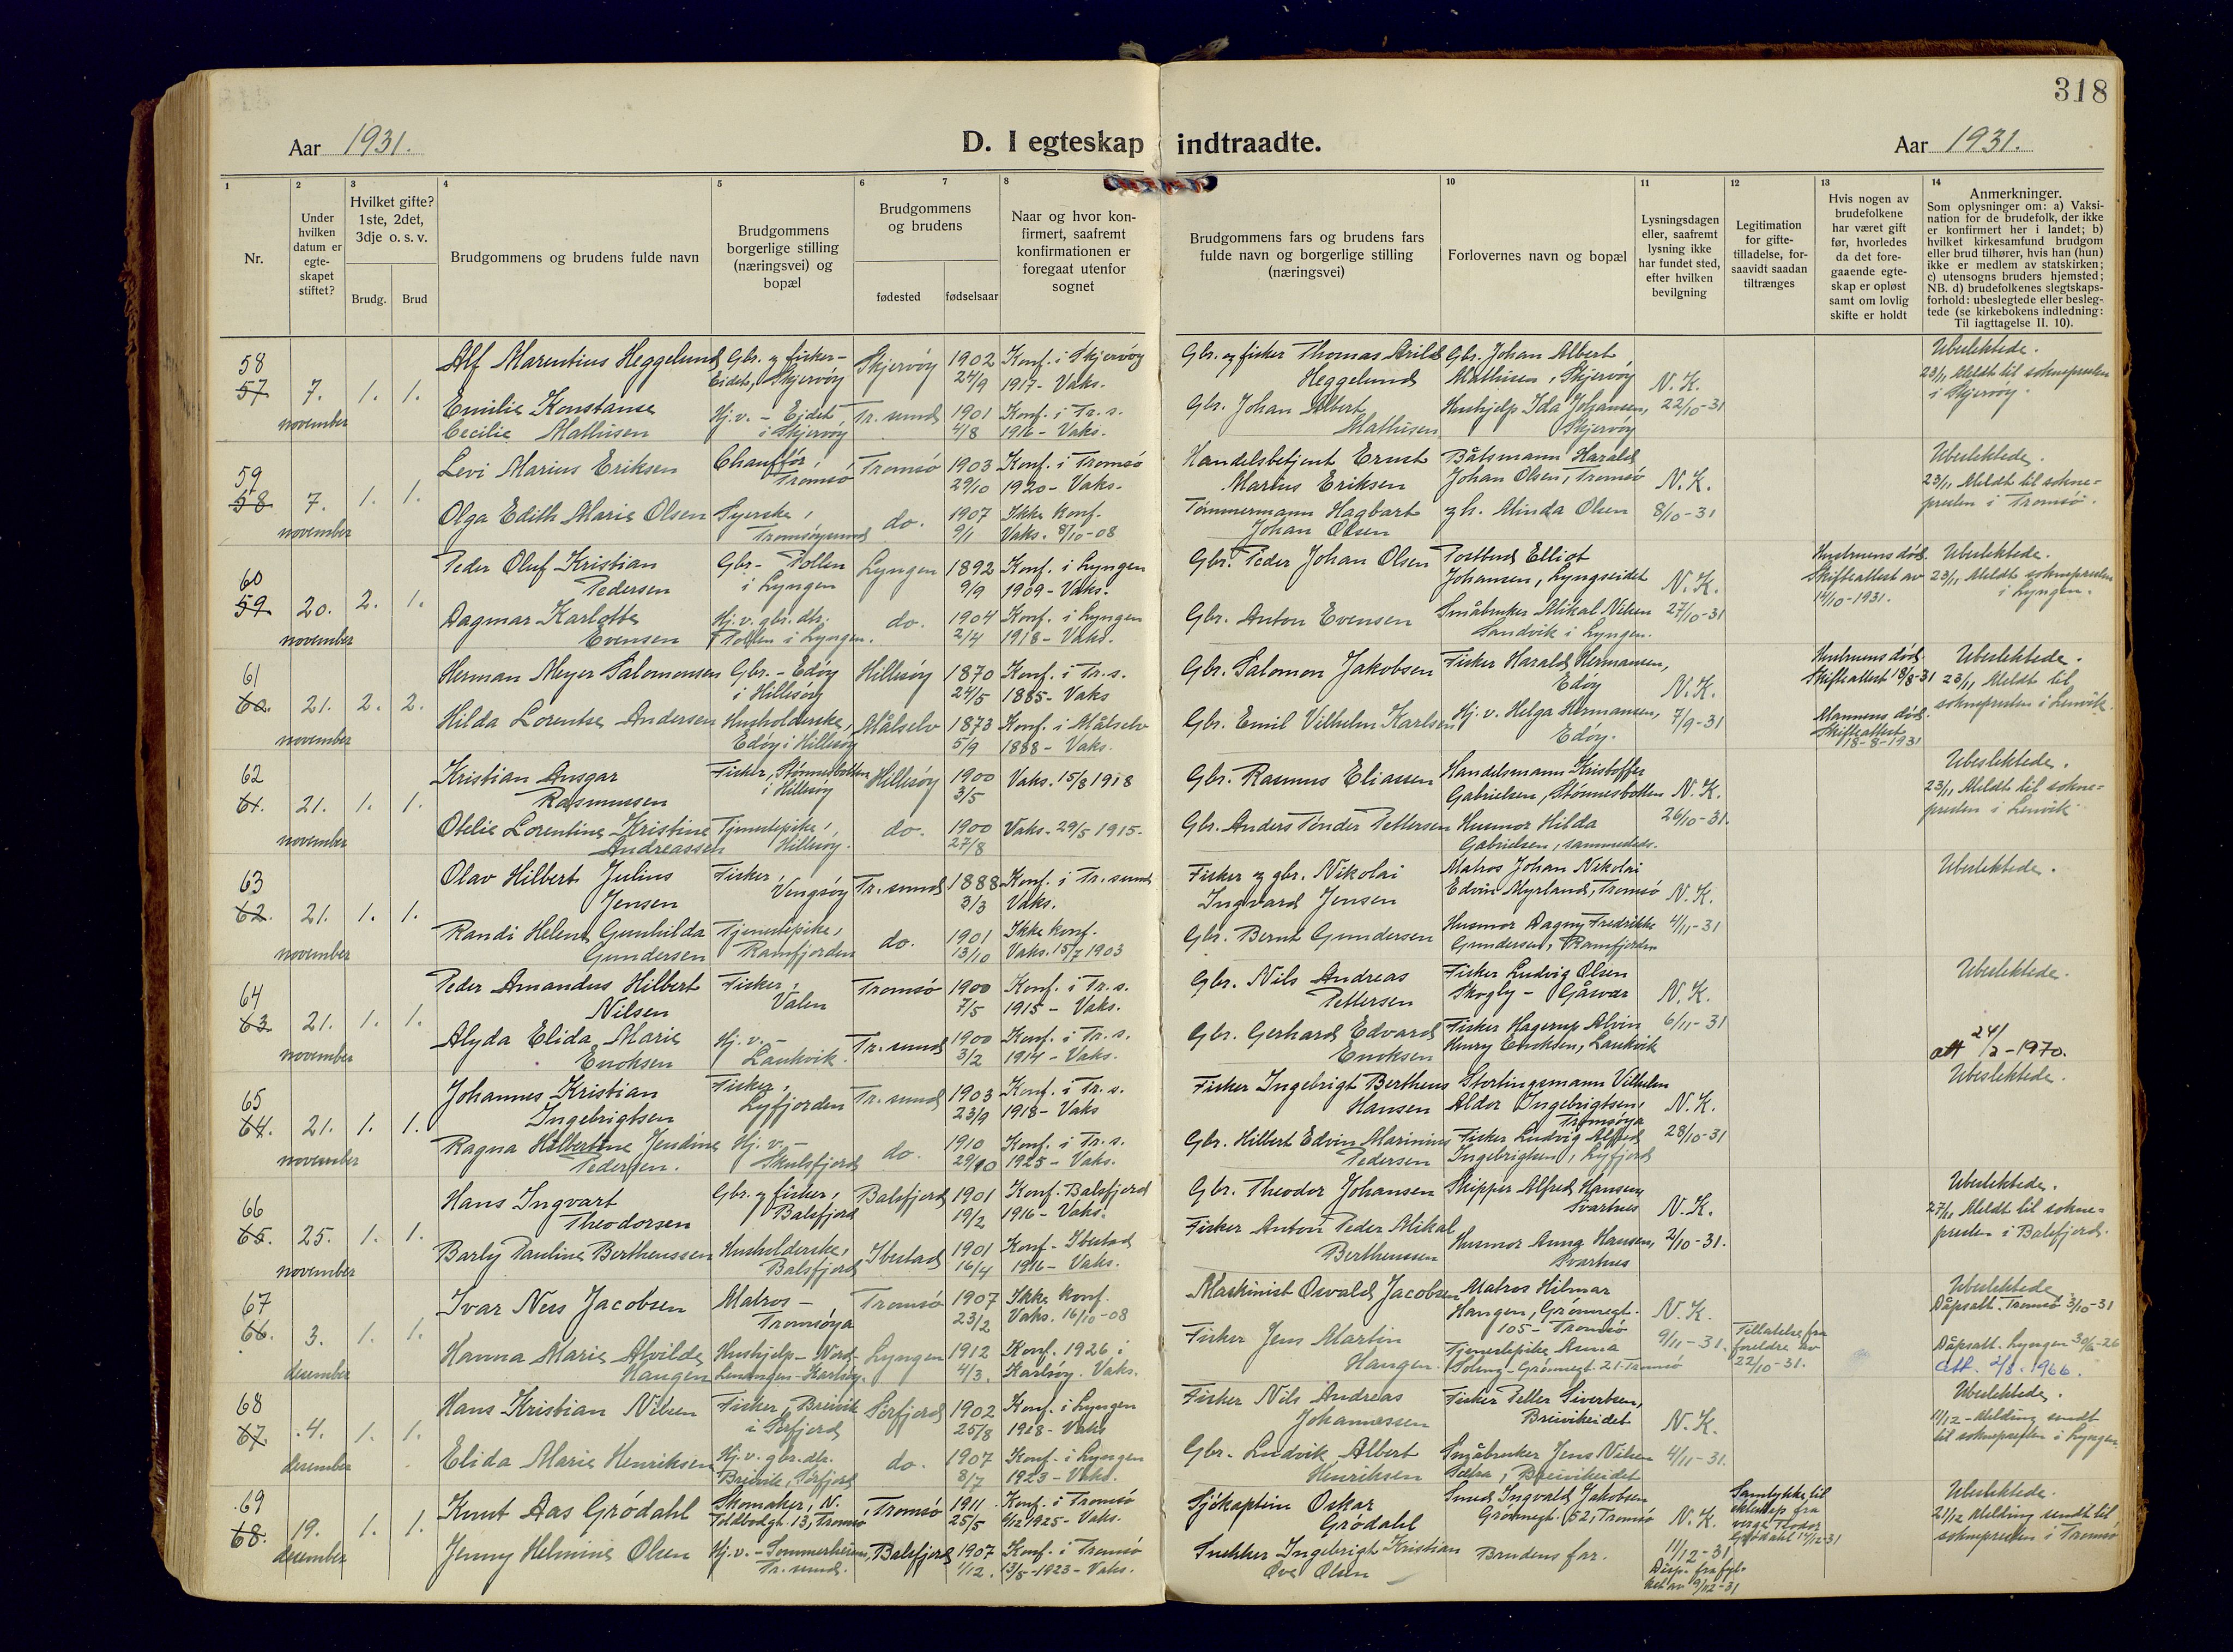 318
Aar 1931.
D. I egteskap indtraadte.
Aar 1931.
1 2 3 4 5 6 7 8 10 11 12 13 14
Nr.
Under hvilken datum er egte-skapet stiftet?
Hvilket gifte? 1ste, 2det, 3dje o. s. v.
Brudg. Brud
Brudgommens og brudens fulde navn
Brudgommens borgerlige stilling (næringsvei) og bopæl
Brudgommens og brudens
fødested fødselsaar
Naar og hvor kon-firmert, saafremt konfirmationen er foregaat utenfor sognet
Brudgommens fars og brudens fars fulde navn og borgerlige stilling (næringsvei)
Forlovernes navn og bopæl
Lysningsdagen eller, saafremt lysning ikke har fundet sted, efter hvilken bevilgning
Legitimation for gifte-tilladelse, for-saavidt saadan tiltrænges
Hvis nogen av brudefolkene har været gift før, hvorledes da det fore-gaaende egte-skap er opløst samt om lovlig skifte er holdt
Anmerkninger.
Som oplysninger om: a) Vaksi-nation for de brudefolk, der ikke er konfirmert her i landet; b) hvilket kirkesamfund brudgom eller brud tilhører, hvis han (hun) ikke er medlem av statskirken; c) utensogns bruders hjemsted; NB. d) brudefolkenes slegtskaps-forhold: ubeslegtede eller besleg-tede (se kirkebokens indledning: Til iagttagelse II. 10).
58 57. 7. november 1. 1.
Alf Marentius Heggelund Gbr. og fisker - Eidet, Skjervöy Skjervöy 1902 24/9 Konf. i Skjervöy 1917 - Vaks.
Emilie Konstanse Cecilie Mathisen Hj.v. - Eidet i Skjervöy Tr.sund 1901 4/8 Konf. i Tr.s. 1916 - Vaks.
Gbr. og fisker Thomas Arild Heggelund Gbr. Johan Albert Mathisen, Skjervöy N.K. 22/10-31
Gbr. Johan Albert Mathisen Hushjelp Ida Johansen, Skjervöy
Ubeslektede. 23/11 Meldt til soknepresten i Skjervöy.
59 58. 7. november 1. 1.
Levi Marius Eriksen Chaufför, Tromsö Tromsö 1903 29/10 Konf. i Tromsö 1920 - Vaks.
Olga Edith Marie Olsen Syerske, Tromsöysund do. 1907 9/1 Ikke konf. Vaks. 8/10-08
Handelsbetjent Ernst Marius Eriksen Båtsmann Harald Johan Olsen, Tromsö N.K. 8/10-31
Tømmermann Hagbart Johan Olsen og h. Minda Olsen
Ubeslektede. 23/11 Meldt til sokne=presten i Tromsö.
60 59. 20. november 2. 1.
Peder Oluf Kristian Pedersen Gbr - Pollen i Lyngen Lyngen 1892 9/9 Konf. i Lyngen 1909 - Vaks.
Dagmar Karlotte Evensen Hj.v. gbr.dtr. Pollen i Lyngen. do. 1904 2/4 Konf. i Lyngen 1918 - Vaks.
Gbr. Peder Johan Olsen Postbud Elliot Johansen, Lyngseidet N.K. 27/10-31
Gbr. Anton Evensen Småbruker Mikal Nilsen Sandvik i Lyngen.
Hustruens død. Skifteattest av 14/10-1931.
Ubeslektede. 23/11 Meldt soknepresten i Lyngen.
61 60. 21. november 2. 2.
Herman Meyer Salomonsen Gbr. - Edöy i Hillesöy Hillesöy 1870 24/5 Konf. i Tr.s. 1885 - Vaks
Hilda Lorentse Andersen Husholderske, Edöy i Hillesöy Målselv 1873 5/9 Konf. i Målselv 1888 - Vaks.
Gbr. Salomon Jakobsen Fisker Harald Hermansen, Edöy N.K. 7/9-31
Gbr. Emil Vilhelm Karlsen Hj.v. Helga Hermansen, Edöy.
Hustruens død. Skifteattest 18/8-31
Mannens død. Skifteattest 18-8-1931
Ubeslektede. 23/11 Meldt til soknepresten i Lenvik.
62 61. 21. november 1. 1.
Kristian Ansgar Rasmussen Fisker, Stönnesbotten i Hillesöy Hillesöy 1900 3/5 Vaks. 15/8 1918
Otelie Lorentine Kristine Andreassen Tjenestepike, Hillesöy. do. 1900 27/8 Vaks. 29/5 1915.
Gbr. Rasmus Eliassen Handelsmann Kristoffer Gabrielsen, Stönnesbotten N.K. 26/10-31.
Gbr. Anders Tönder Pettersen Husmor Hilda Gabrielsen, sammesteds.
Ubeslektede. 23/11 Meldt til sokne=presten i Lenvik
63 62. 21. november 1. 1.
Olav Hilbert Julius Jensen Fisker, Vengsöy Tr.sund 1888 3/3 Konf. i Tr.sund Vaks.
Randi Helene Gunhilda Gundersen Tjenestepike, Ramfjorden do. 1901 13/10 Ikke konf. Vaks. 15/7 1903
Fisker og gbr. Nikolai Ingvard Jensen Matros Johan Nikolai Edvin Myrland, Tromsö N.K. 4/11-31
Gbr. Bernt Gundersen Husmor Dagny Fredrikke Gundersen, Ramfjorden
Ubeslektede.
64 63. 21. november 1. 1.
Peder Amandus Hilbert Nilsen Fisker, Valen Tromsö 1900 7/5 Konf. i Tr.s. 1915 - Vaks.
Alyda Elida Marie Enoksen Hj.v. - Laukvik. Tr.sund 1900 3/2 Konf. i Tr.s. 1914 - Vaks.
Gbr. Nils Andreas Pettersen Fisker Ludvig Olsen Skogly - Gåsvær N.K. 6/11-31
Gbr. Gerhard Edvard Enoksen Fisker Hagerup Alvin Henry Enoksen, Laukvik
Ubeslektede.
att 24/2-1970.
65 64. 21. november 1. 1.
Johannes Kristian Ingebrigtsen Fisker, Lyfjorden Tr.sund 1903 23/9 Konf. i Tr.s. 1918 - Vaks
Ragna Hilbertine Jendine Pedersen. Hj.v. - Skulsfjord do. 1910 29/10 Konf. i Tr.s. 1925 - Vaks.
Fisker Ingebrigt Bertheus Hansen Stortingsmann Vilhelm Aldor Ingebrigtsen, Tromsöya N.K. 28/10-31
Gbr. Hilbert Edvin Marinius Pedersen Fisker Ludvig Alfred Ingebrigtsen, Lyfjord
Ubeslektede.
66 65. 25. november 1. 1.
Hans Ingvart Theodorsen Gbr. og fisker, Balsfjord Balsfjord 1901 19/2 Konf. Balsfjord 1916 - Vaks.
Barly Pauline Bertheussen Husholderske, Balsfjord Ibestad 1901 16/4 Konf. - Ibestad 1916 - Vaks.
Gbr. Theodor Johansen Skipper Alfred Hansen, Svartnes N.K. 2/10-31.
Fisker Anton Peder Mikal Bertheussen Husmor Anna Hansen, Svartnes
Ubeslektede. 27/11 Meldt til sokne=presten i Balsfjord.
67 66. 3. desember 1. 1.
Ivar Ners Jacobsen Matros - Tromsöya Tromsö 1907 23/2 Ikke konf. Vaks. 16/10-08
Hanna Marie Alvilde Haugen Hushjelp - Nord-Lenangen - Karlsöy. Lyngen 1912 4/3. Konf. 1926 i Karlsöy. Vaks.
Maskinist Osvald Jacobsen Matros Hilmar Haugen, Grønnegt. 105 - Tromsö N.K. 9/11-31.
Fisker Jens Martin Haugen. Tjenestepike Anna Soleng - Grønnegt. 21 - Tromsö
Tillatelse fra foreldre av 22/10-31.
Ubeslektede Dåpsatt. Tromsö 3/10-31
Dåpsatt. Lyngen 30/6-26
Att. 2/8. 1966.
68 67. 4. desember 1. 1.
Hans Kristian Nilsen Fisker, Breivik i Sörfjord Sörfjord 1902 25/8 Konf. i Lyngen 1918 - Vaks
Elida Marie Henriksen Hj.v. gbr.dtr. Breivik, Sörfjord do. 1907 8/7 Konf. i Lyngen 1923 - Vaks.
Fisker Nils Andreas Johannessen Fisker Petter Sivertsen, Breivikeidet N.K. 4/11-31.
Gbr. Ludvik Albert Henriksen Småbruker Jens Nilsen Sætra, Breivikeidet
Ubeslektede. 11/12 - Melding sendt til soknepresten i Lyngen.
69 68. 19. desember 1. 1.
Knut Aas Grödahl Skomaker, N. Toldbodgt. 13, Tromsö Tromsö 1911 25/5 Konf. i Tromsö 6/12 1925 - Vaks.
Jenny Helmine Olsen Hj.v. - Sommerheim, Tr.sund. Balsfjord 1907 1/12. Konf. i Tromsö 13/5-1923 - Vaks.
Sjökaptein Oskar Grödahl Smed Ingvald Jakobsen Grønnegt. 52, Tromsö N.K. 11/12-31
Snekker Ingebrigt Kristian Ove Olsen Brudens far. Disp. fra fyl-ket av 19/12-31
Samtykke til ekteskap fra verge Theodor Grödahl 17/12-31
Ubeslektede. 21/12 Melding sendt til soknepresten i Tromsö